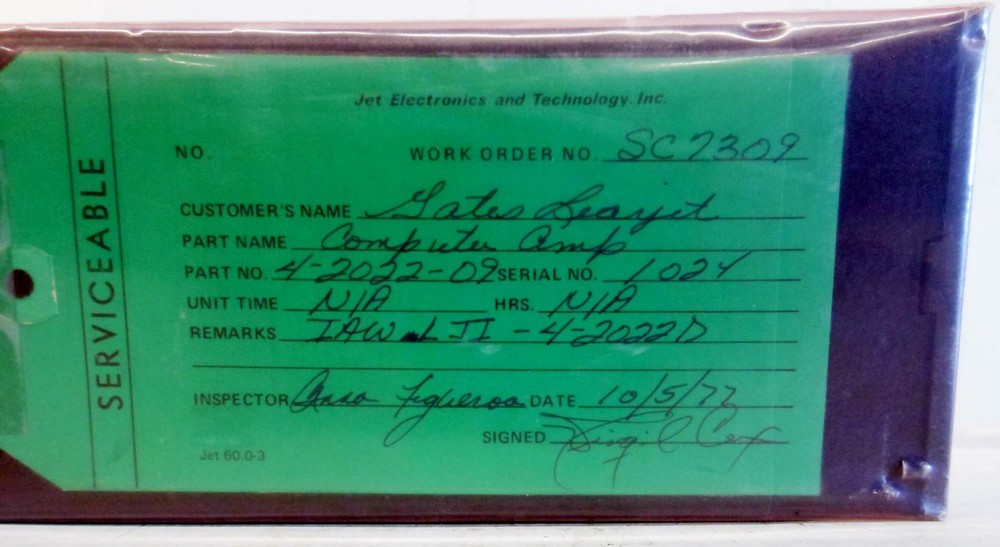 Jet Electronics and Technology. Inc.
NO. WORK ORDER NO. SC7309
SERVICEABLE
CUSTOMER'S NAME Gates Learjet
PART NAME Computer Amp
PART NO. 4-2022-09 SERIAL NO. 1024
UNIT TIME N/A HRS. N/A
REMARKS IAW LJI - 4-2022D
INSPECTOR Figueroa DATE 10/5/77
SIGNED Virgil
Jet 60.0-3